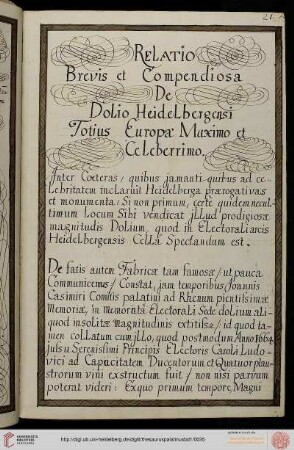 RELATIO
Brevis et Compendiosa
De
Dolio Heidelbergensi
Totius Europæ Maximo et
Celeberrimo.
Inter Cœteras / quibus jam anti quitus ad ce-
lebritatem inclaruit Heidelberga prærogativas
et monumenta / Si non primum, certe quidem nec ul-
timum Locum Sibi vendicat jllud prodigiosæ
magnitudis Dolium, quod in Electoralis arcis
Heidelbergensis Cella Spectandum est.
De fatis autem Fabricæ tam famosæ / ut pauca
Communicemus / Constat, jam temporibus Joannis
Casimiri Comitis palatini ad Rhenum pientissimæ
Memoriæ, in memorata Electorali Sede dolium ali-
quod insolitæ magnitudinis extitisse / id quod ta-
men collatum cum jllo, quod postmodum Anno 1664
Jussu Serenissimi Principis Electoris Caroli Ludo-
vici ad Capacitatem Ducentorum et Quatuor plau-
strorum vini exstructum fuit / non nisi parvum
poterat videri: Ex quo primum tempore, Magni
http://digi.ub.uni-heidelberg.de/diglit/thesauruspalatinusbd1/0035
UNIVERSITÄTS-
BIBLIOTHEK
HEIDELBERG